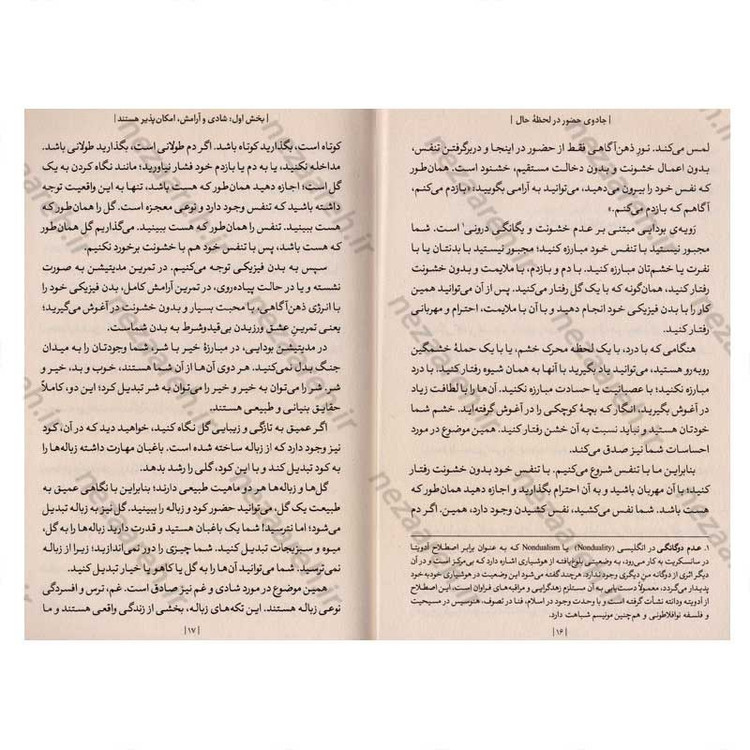 | جادوی حضور در لحظهٔ حال |
لمس می‌کند. نورِ ذهن‌آگاهی فقط از حضور در اینجا و دربرگرفتن تنفس،
بدون اعمال خشونت و بدون دخالت مستقیم، خشنود است. همان‌طور
که نفس خود را بیرون می‌دهید، می‌توانید به آرامی بگویید: «بازدم می‌کنم،
آگاهم که بازدم می‌کنم.»
رویه‌ی بودایی مبتنی بر عدم خشونت و یگانگی درونی۱ است. شما
مجبور نیستید با تنفس خود مبارزه کنید؛ مجبور نیستید با بدنتان یا با
نفرت یا خشم‌تان مبارزه کنید. با دم و بازدم، با ملایمت و بدون خشونت
رفتار کنید، همان‌گونه که با یک گل رفتار می‌کنید. پس از آن می‌توانید همین
کار را با بدن فیزیکی خود انجام دهید و با آن با ملایمت، احترام و مهربانی
رفتار کنید.
هنگامی که با درد، با یک لحظه محرک خشم، یا با یک حملهٔ خشمگین
روبه‌رو هستید، می‌توانید یاد بگیرید با آنها به همان شیوه رفتار کنید. با درد
مبارزه نکنید؛ با عصبانیت یا حسادت مبارزه نکنید. آن‌ها را با لطافت زیاد
در آغوش بگیرید، انگار که بچهٔ کوچکی را در آغوش گرفته‌اید. خشم شما
خودتان هستید و نباید نسبت به آن خشن رفتار کنید. همین موضوع در مورد
احساسات شما نیز صدق می‌کند.
بنابراین ما با تنفس شروع می‌کنیم. با تنفس خود بدون خشونت رفتار
کنید؛ با آن مهربان باشید و به آن احترام بگذارید و اجازه دهید همان‌طور که
هست باشد. شما نفس می‌کشید، نفس کشیدن وجود دارد، همین. اگر دم
۱. عدم دوگانگی در انگلیسی (Nonduality) یا Nondualism که به عنوان برابر اصطلاح آدویتا
در سانسکریت به کار می‌رود، به وضعیتی بلوغ‌یافته از هوشیاری اشاره دارد که بی‌مرکز است و در آن
دیگر اثری از دوگانه من دیگری وجود ندارد. هرچند گفته می‌شود این وضعیت در هوشیاری خودبه خود
پدیدار می‌گردد، معمولاً دست‌یابی به آن مستلزم زهدگرایی و مراقبه‌های فراوان است، این اصطلاح
از آدویته ودانته نشأت گرفته است و با وحدت وجود در اسلام، فنا در تصوف، هنوسیس در مسیحیت
و فلسفه نوافلاطونی و هم‌چنین مونیسم شباهت دارد.
| ۱۶ |
| بخش اول: شادی و آرامش، امکان‌پذیر هستند |
کوتاه است، بگذارید کوتاه باشد. اگر دم طولانی است، بگذارید طولانی باشد.
مداخله نکنید، یا به دم یا بازدم خود فشار نیاورید؛ مانند نگاه کردن به یک
گل است؛ اجازه دهید همان‌طور که هست باشد، تنها به این واقعیت توجه
داشته باشید که تنفس وجود دارد و نوعی معجزه است. گل را همان‌طور که
هست ببینید. تنفس را همان‌طور که هست ببینید. می‌گذاریم گل همان‌طور
که هست باشد، پس با تنفس خود هم با خشونت برخورد نکنیم.
سپس به بدن فیزیکی توجه می‌کنیم. در تمرین مدیتیشن به صورت
نشسته و یا در حالت پیاده‌روی، در تمرین آرامش کامل، بدن فیزیکی خود را
با انرژی ذهن‌آگاهی، با محبت بسیار و بدون خشونت در آغوش می‌گیرید؛
یعنی تمرینِ عشق ورزیدن بی‌قیدوشرط به بدن شماست.
در مدیتیشن بودایی، در مبارزهٔ خیر با شر، شما وجودتان را به میدان
جنگ بدل نمی‌کنید. هر دوی آن‌ها از آن شما هستند، خوب و بد، خیر و
شر. شر را می‌توان به خیر و خیر را می‌توان به شر تبدیل کرد؛ این دو، کاملاً
حقایق بنیانی و طبیعی هستند.
اگر عمیق به تازگی و زیبایی گل نگاه کنید، خواهید دید که در آن، کود
نیز وجود دارد که از زباله ساخته شده است. باغبان مهارت داشته زباله‌ها را
به کود تبدیل کند و با این کود، گلی را رشد بدهد.
گل‌ها و زباله‌ها هر دو ماهیت طبیعی دارند؛ بنابراین با نگاهی عمیق به
طبیعت یک گل، می‌توانید حضور کود و زباله را ببینید. گل نیز به زباله تبدیل
می‌شود؛ اما نترسید! شما یک باغبان هستید و قدرت دارید زباله‌ها را به گل،
میوه و سبزیجات تبدیل کنید. شما چیزی را دور نمی‌اندازید؛ زیرا از زباله
نمی‌ترسید. شما می‌توانید آن‌ها را به گل یا کاهو یا خیار تبدیل کنید.
همین موضوع در مورد شادی و غم نیز صدق است. غم، ترس و افسردگی
نوعی زباله هستند. این تکه‌های زباله، بخشی از زندگی واقعی هستند و ما
| ۱۷ |
nezaareh.ir